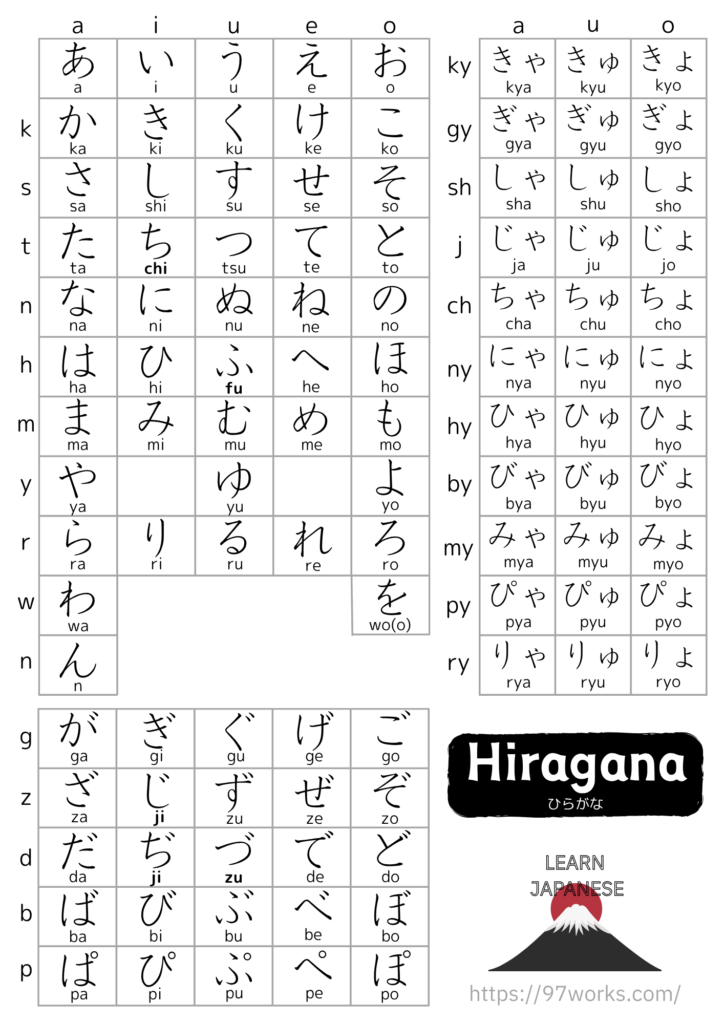 a i u e o
あ い う え お
a i u e o
k か き く け こ
ka ki ku ke ko
s さ し す せ そ
sa shi su se so
t た ち つ て と
ta chi tsu te to
n な に ぬ ね の
na ni nu ne no
h は ひ ふ へ ほ
ha hi fu he ho
m ま み む め も
ma mi mu me mo
y や ゆ よ
ya yu yo
r ら り る れ ろ
ra ri ru re ro
w わ を
wa wo(o)
n ん
n
g が ぎ ぐ げ ご
ga gi gu ge go
z ざ じ ず ぜ ぞ
za ji zu ze zo
d だ ぢ づ で ど
da ji zu de do
b ば び ぶ べ ぼ
ba bi bu be bo
p ぱ ぴ ぷ ぺ ぽ
pa pi pu pe po
a u o
ky きゃ きゅ きょ
kya kyu kyo
gy ぎゃ ぎゅ ぎょ
gya gyu gyo
sh しゃ しゅ しょ
sha shu sho
j じゃ じゅ じょ
ja ju jo
ch ちゃ ちゅ ちょ
cha chu cho
ny にゃ にゅ にょ
nya nyu nyo
hy ひゃ ひゅ ひょ
hya hyu hyo
by びゃ びゅ びょ
bya byu byo
my みゃ みゅ みょ
mya myu myo
py ぴゃ ぴゅ ぴょ
pya pyu pyo
ry りゃ りゅ りょ
rya ryu ryo
Hiragana
ひらがな
LEARN
JAPANESE
https://97works.com/